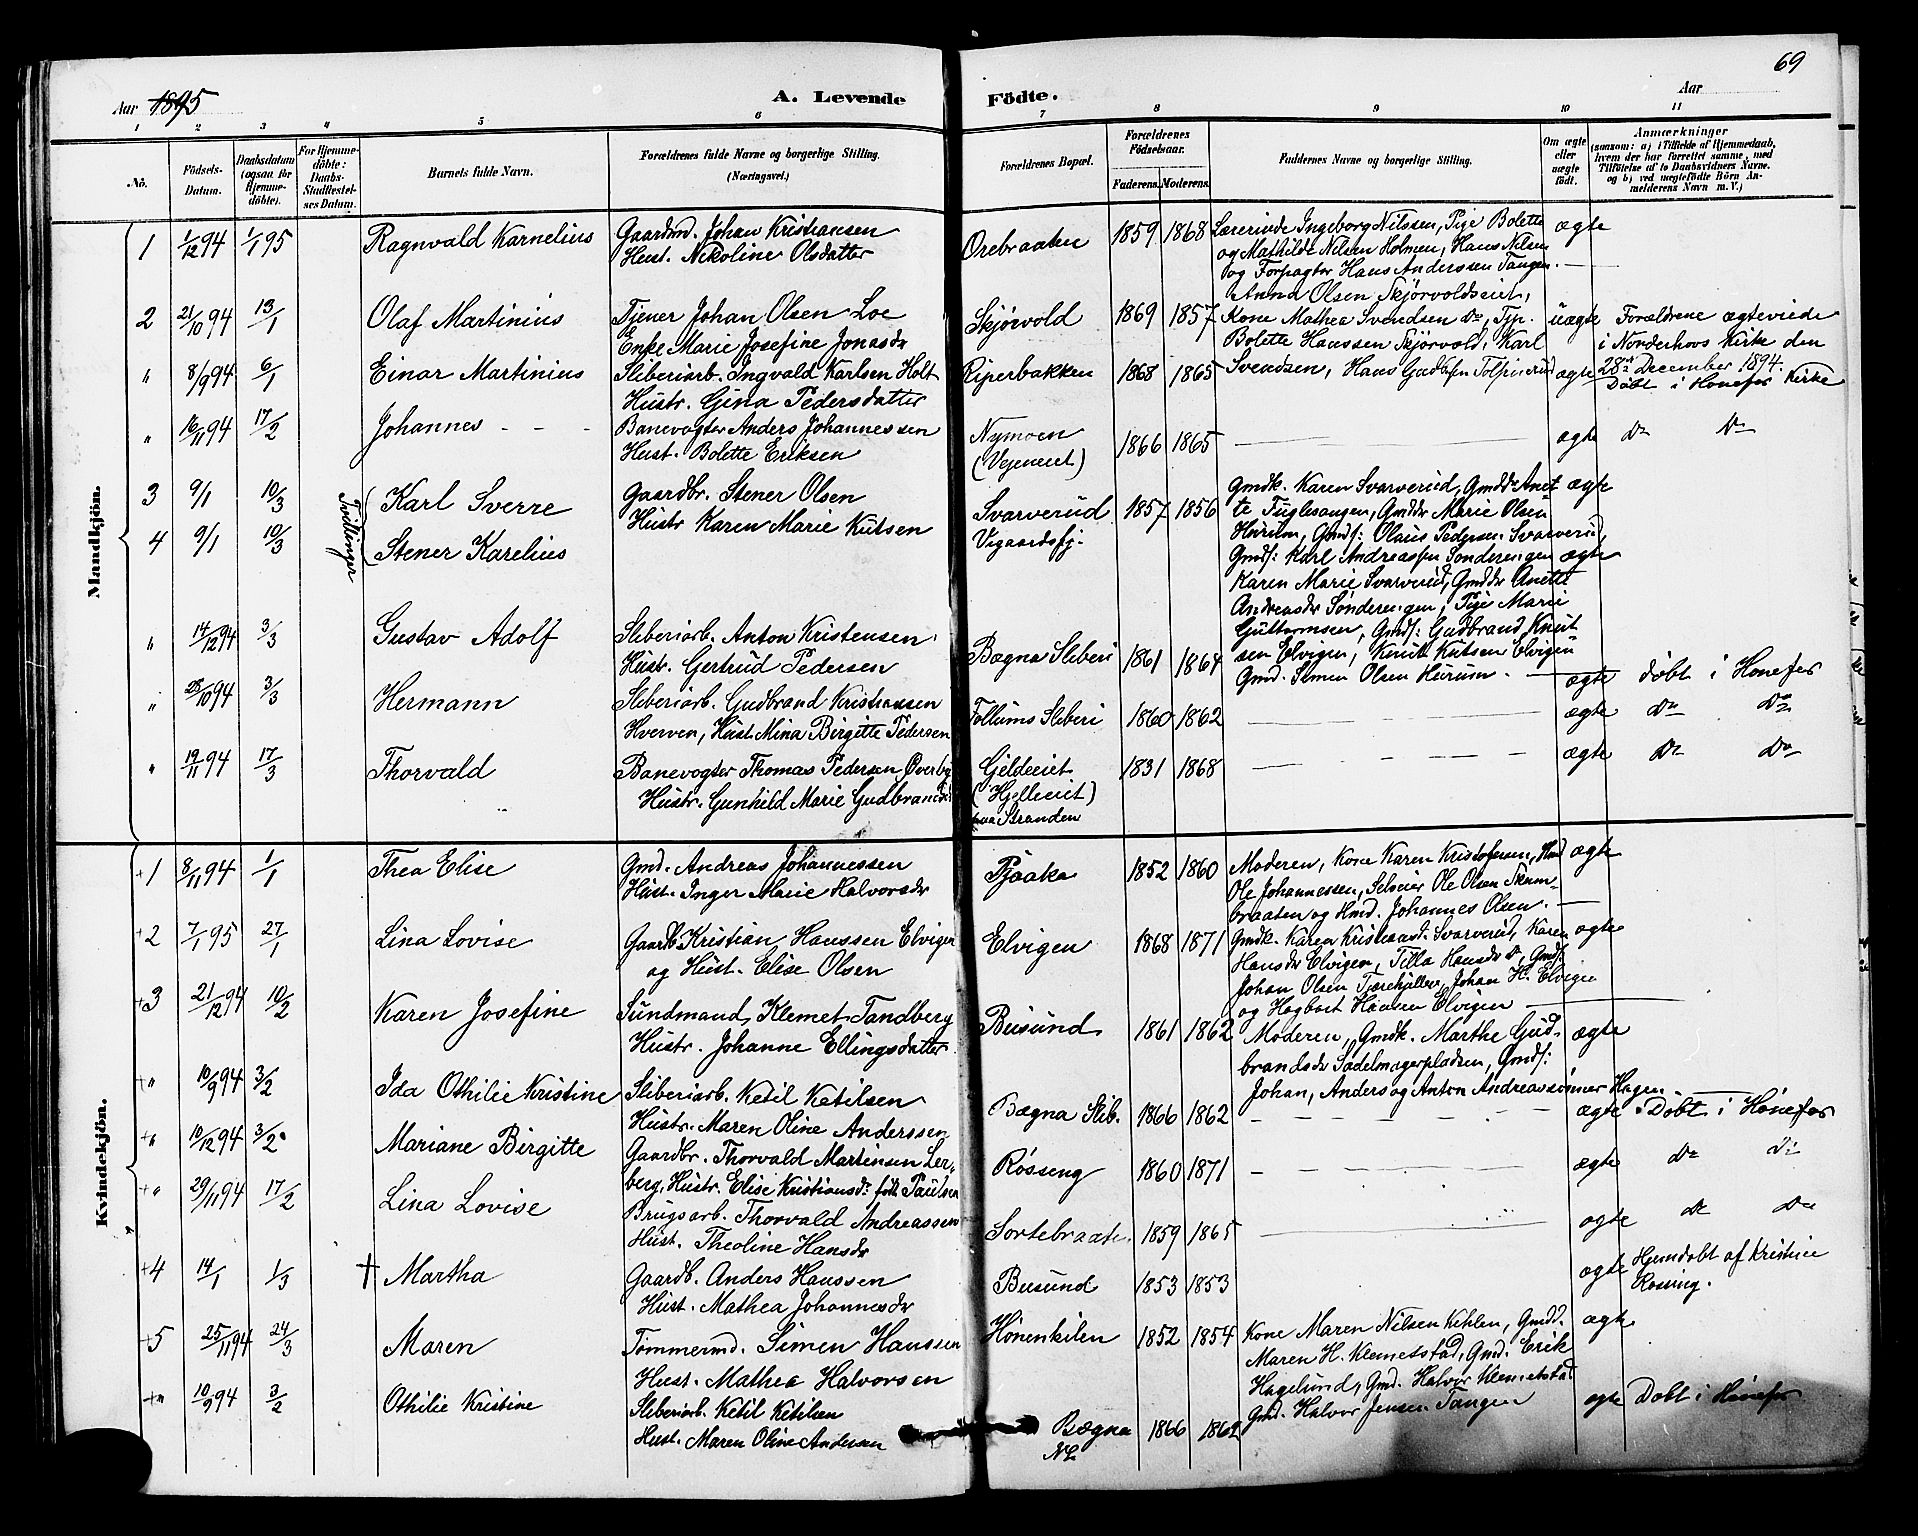 69
Aar 1895
A. Levende
Födte.
Aar
1 2 3 4 5 6 7 8 9 10 11
No.
Födsels-Datum.
Daabsdatum (ogsaa for Hjemme-döbte).
For Hjemme-döbte: Daabs-Stadfæstelses Datum.
Barnets fulde Navn.
Forældrenes fulde Navne og borgerlige Stilling. (Næringsvei.)
Forældrenes Bopæl.
Forældrenes Födselsaar.
Faderens. Moderens.
Faddernes Navne og borgerlige Stilling.
Om ægte eller uægte födt.
Anmærkninger
(saasom: a) i Tilfælde af Hjemmedaab, hvem der har forrettet samme, med Tilföielse af to Daabsvidners Navne. og b) ved uægtefödte Börn Anmelderens Navn m. V.)
Mandkjön.
1 1/12 94 1/1 95 Ragnvald Kornelius
Gaardmd. Johan Kristiansen
Hust. Nikoline Olsdatter
Orebraaten 1859 1868
Lærerinde Ingeborg Nilssen, Pige Bolette
og Mathilde Nilsen Holmen, Hans Nilsen
og Forpagter Hans Anderssen Tangen.
ægte
2 21/10 94 13/1 Olaf Martinius
Tjener Johan Olsen Loe
Enke Marie Josefine Jonasdr
Skjørvold 1869 1857
Anna Olsen Skjørvoldseiet,
Kone Mathea Svendsen do, Tjp.
Bolette Hanssen Skjørvold, Karl
Svendsen, Hans
uægte Forældrene ægteviede
i Norderhovs Kirke den
28de December 1894.
" 8/9 94 6/1 Einar Martinius
Sliberiarb. Ingvald Karlsen Holt
Hustr. Gina Pedersdatter
Riperbakken 1868 1865
ægte Döbt i Hönefos Kirke
" 16/11 94 17/2 Johannes
Banevogter Anders Johannessen
Hust. Bolette Eriksen
Nymoen
(Vejeneiet)
1866 1865 ægte do do
3 9/1 10/3 Karl Sverre
4 9/1 10/3 Stener Karelius
Tvillinger
Gaardbr. Stener Olsen
Hustr Karen Marie Kutsen
Svarverud
Vegaardsfj.
1857 1856
Gmdk. Karen Svarverud, Gmddr Anet
te Fuglesangen, Gmddr Marie Olsen
Hurum, Gmds: Olaus Pedersen Svarverud,
Gmds: Karl Andreassen Sonderengen
Karen Marie Svarverud, Gmddr Anette
Andreasdr Sönderengen, Pige Marie
Guttormsen, Gmds: Gudbrand Knut
sen Elvigen, Knut Kutsen Elvigen
Gmd. Simen Olsen Hurum.
ægte
ægte
" 14/12 94 3/3 Gustav Adolf
Sliberiarb. Anton Kristensen
Hustr. Gertrud Pedersen
Bægna Sliberi 1861 1864 ægte Döbt i Hönefos
" 28/10 94 3/3 Hermann
Sliberiarb. Gudbrand Kristiansen
Hverven, Hust. Mina Birgitte Pedersen
Follums Sliberi 1860 1862 ægte do do
" 19/11 94 17/3 Thorvald
Banevogter Thomas Pedersen Överby
Hustr. Gunhild Marie Gudbrandsdr
Gjeldeeiet
(Hjelleeiet)
paa Stranden
1831 1868 ægte do do
Kvindekjön.
+1 8/11 94 1/1 Thea Elise
Gmd. Andreas Johannessen
Hust. Inger Marie Halvorsdr
Pjaaka 1852 1860
Moderen, Kone Karen Kristofersen, Hmd
Ole Johannessen, Selveier Ole Olsen Skam-
braaten og Hmd. Johannes Olsen.
ægte
+2 7/1 95 27/1 Lina Lovise
Gaardb. Kristian Hanssen Elvigen
og Hust. Elise Olsen
Elvigen 1868 1871
Gmdk. Karen Kristiansd. Svarverud, Karen
Hansdr Elvigen, Tilla Hansdr do, Gmds:
Johan Olsen Tjærehjellen, Johan H. Elvigen
og Hagbart Hansen Elvigen
ægte
+3 21/12 94 10/2 Karen Josefine
Sundmand, Klemet Tandberg
Hustr. Johanne Ellingsdatter
Busund 1861 1862
Moderen, Gmdk. Marthe Gud-
brandsdr Sadelmagerpladsen, Gmds:
Johan, Anders og Anton Andreassönner Hagen
ægte
+" 10/9 94 3/2 Ida Othilie Kristine
Sliberiarb. Ketil Ketilsen
Hustr. Maren Oline Anderssen
Bægna Slib. 1866 1862 ægte Döbt i Hönefos
+" 10/12 94 3/2 Mariane Birgitte
Gaardbr. Thorvald Martinsen Ler-
berg, Hustr. Elise Kristiansdr født Paulsen
Røsseng 1860 1871 ægte do do
+" 29/11 94 17/2 Lina Lovise
Brugsarb. Thorvald Andreassen
Hust. Theoline Hansdr
Sortebraate. 1859 1865 ægte do do
+4 14/1 1/3 † Martha
Gaardb. Anders Hanssen
Hust. Mathea Johannesdr
Busund 1853 1853 ægte
Hjemdöbt af Kristine
Røsseng.
+5 25/11 94 24/3 Maren
Tömmermd. Simen Hanssen
Hust. Mathea Halvorsen
Hönenkilen 1852 1854
Kone Maren Nilsen Kihlen, Gmdd.
Maren H. Klemetstad, Gmd. Erik
Hagelund, Gmd. Halvor Klemetstad
Gmd. Halvor Jensen Tangen
ægte
+" 10/9 94 3/2 Othilie Kristine
Sliberiarb. Ketil Ketilsen
Hust. Maren Oline Andersen
Bægna
1866 1862 ægte Döbt i Hönefos